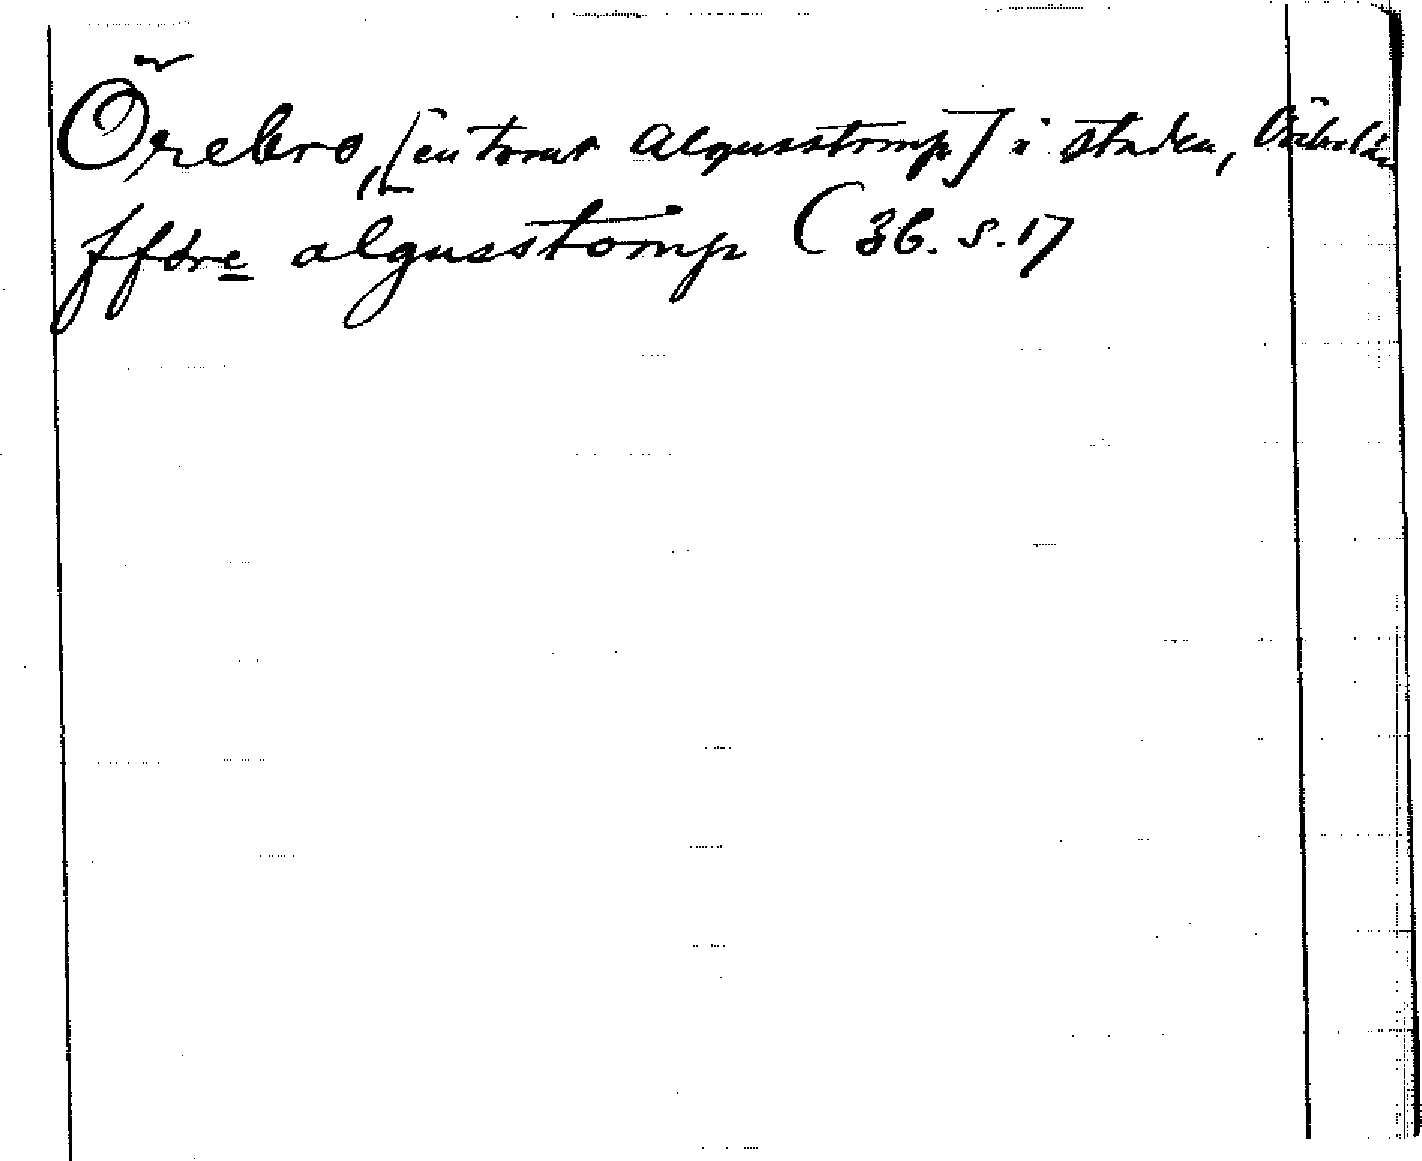 Örebro, [en tomt Algusstomp] i staden, Örebro län
ffdre algusstomp (3 b. s. 17